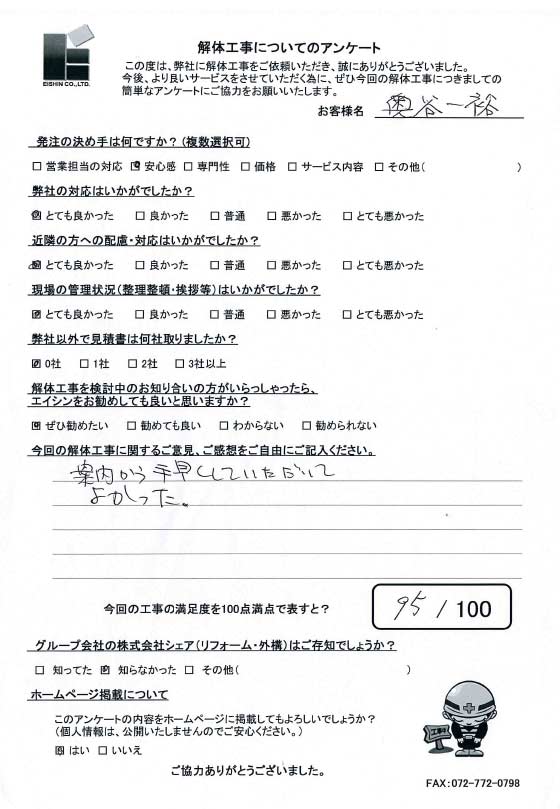 EISHIN CO.,LTD.
解体工事についてのアンケート
この度は、弊社に解体工事をご依頼いただき、誠にありがとうございました。
今後、より良いサービスをさせていただく為に、ぜひ今回の解体工事につきましての
簡単なアンケートにご協力をお願いいたします。
お客様名 奥谷一裕
発注の決め手は何ですか？(複数選択可)
□ 営業担当の対応 ☑ 安心感 □ 専門性 □ 価格 □ サービス内容 □ その他( )
弊社の対応はいかがでしたか？
☑ とても良かった □ 良かった □ 普通 □ 悪かった □ とても悪かった
近隣の方への配慮・対応はいかがでしたか？
☑ とても良かった □ 良かった □ 普通 □ 悪かった □ とても悪かった
現場の管理状況(整理整頓・挨拶等)はいかがでしたか？
☑ とても良かった □ 良かった □ 普通 □ 悪かった □ とても悪かった
弊社以外で見積書は何社取りましたか？
☑ 0社 □ 1社 □ 2社 □ 3社以上
解体工事を検討中のお知り合いの方がいらっしゃったら、
エイシンをお勧めしても良いと思いますか？
☑ ぜひ勧めたい □ 勧めても良い □ わからない □ 勧められない
今回の解体工事に関するご意見、ご感想をご自由にご記入ください。
案内から手早くしていただいて
よかった。
今回の工事の満足度を100点満点で表すと？ 95 / 100
グループ会社の株式会社シェア(リフォーム・外構)はご存知でしょうか？
□ 知ってた ☑ 知らなかった □ その他( )
ホームページ掲載について
このアンケートの内容をホームページに掲載してもよろしいでしょうか？
(個人情報は、公開いたしませんのでご安心ください。)
☑ はい □ いいえ
工事中
ご協力ありがとうございました。
FAX:072-772-0798